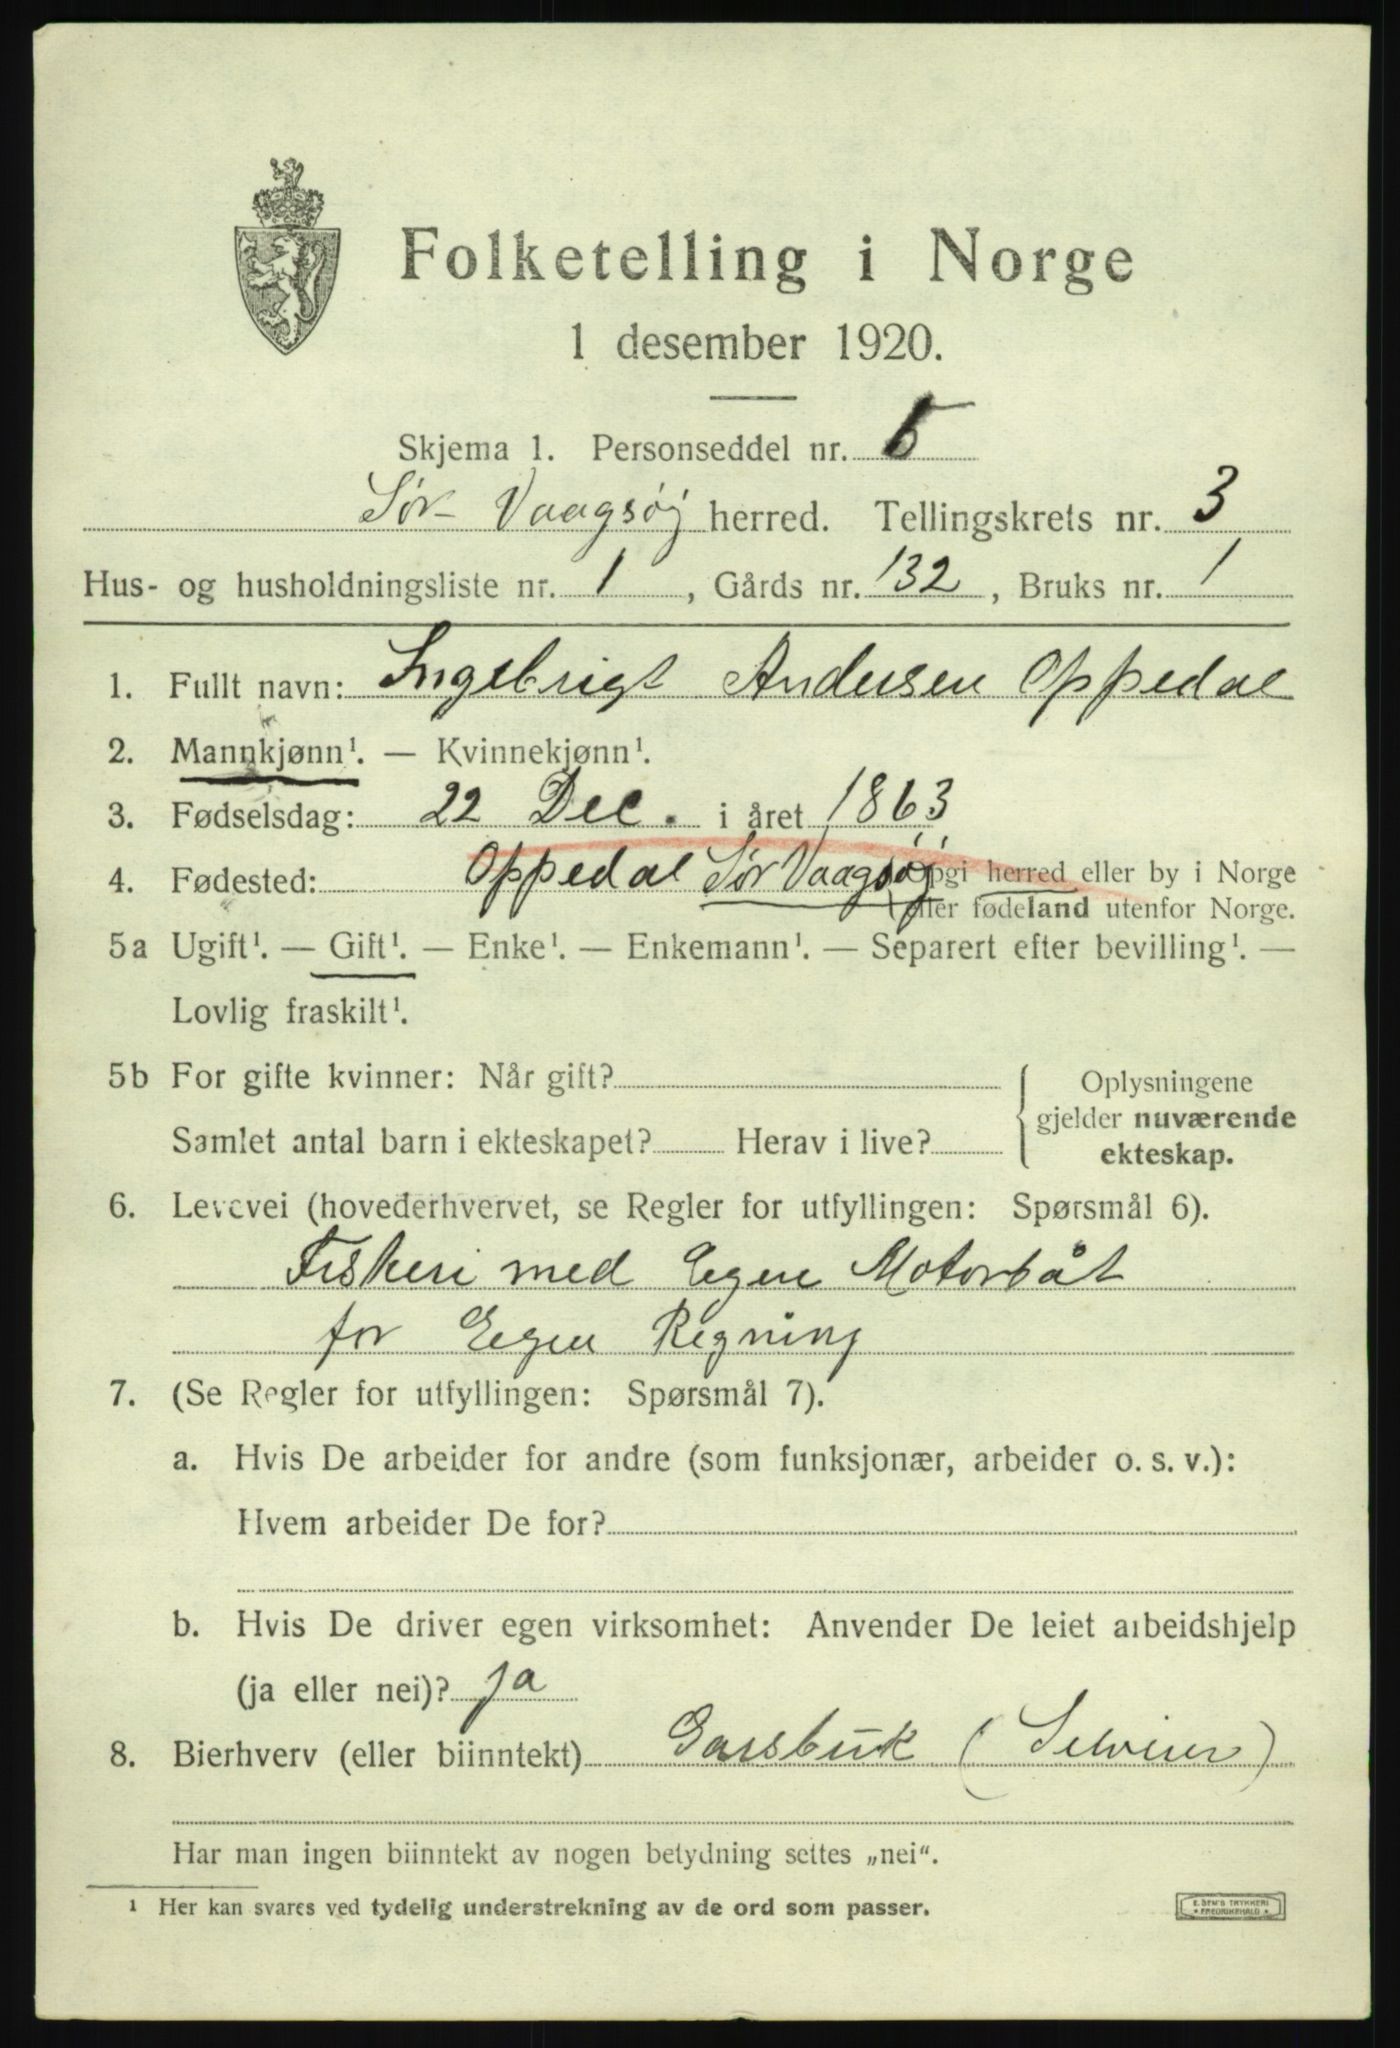 Folketelling i Norge
1 desember 1920.
Skjema 1. Personseddel nr. 5
Sør Vaagsøy herred. Tellingskrets nr. 3
Hus- og husholdningsliste nr. 1, Gårds nr. 132, Bruks nr. 1
1. Fullt navn: Ingebrigt Andersen Oppedal
2. Mannkjønn¹. — Kvinnekjønn¹.
3. Fødselsdag: 22 Dec. i året 1863
4. Fødested: Oppedal Sør Vaagsøy (Opgi herred eller by i Norge
eller fødeland utenfor Norge.
5a Ugift¹. — Gift¹. — Enke¹. — Enkemann¹. — Separert efter bevilling¹. —
Lovlig fraskilt¹.
5b For gifte kvinner: Når gift?
Samlet antal barn i ekteskapet? Herav i live?
Oplysningene
gjelder nuværende
ekteskap.
6. Levevei (hovederhvervet, se Regler for utfyllingen: Spørsmål 6).
Fiskeri med Egen Motorbåt
for Egen Regning
7. (Se Regler for utfyllingen: Spørsmål 7).
a. Hvis De arbeider for andre (som funksjonær, arbeider o. s. v.):
Hvem arbeider De for?
b. Hvis De driver egen virksomhet: Anvender De leiet arbeidshjelp
(ja eller nei)? ja
8. Bierhverv (eller biinntekt) Garsbruk (Selveier)
Har man ingen biinntekt av nogen betydning settes „nei“.
¹ Her kan svares ved tydelig understrekning av de ord som passer.
E. SEM'S TRYKKERI
FREDRIKSHALD